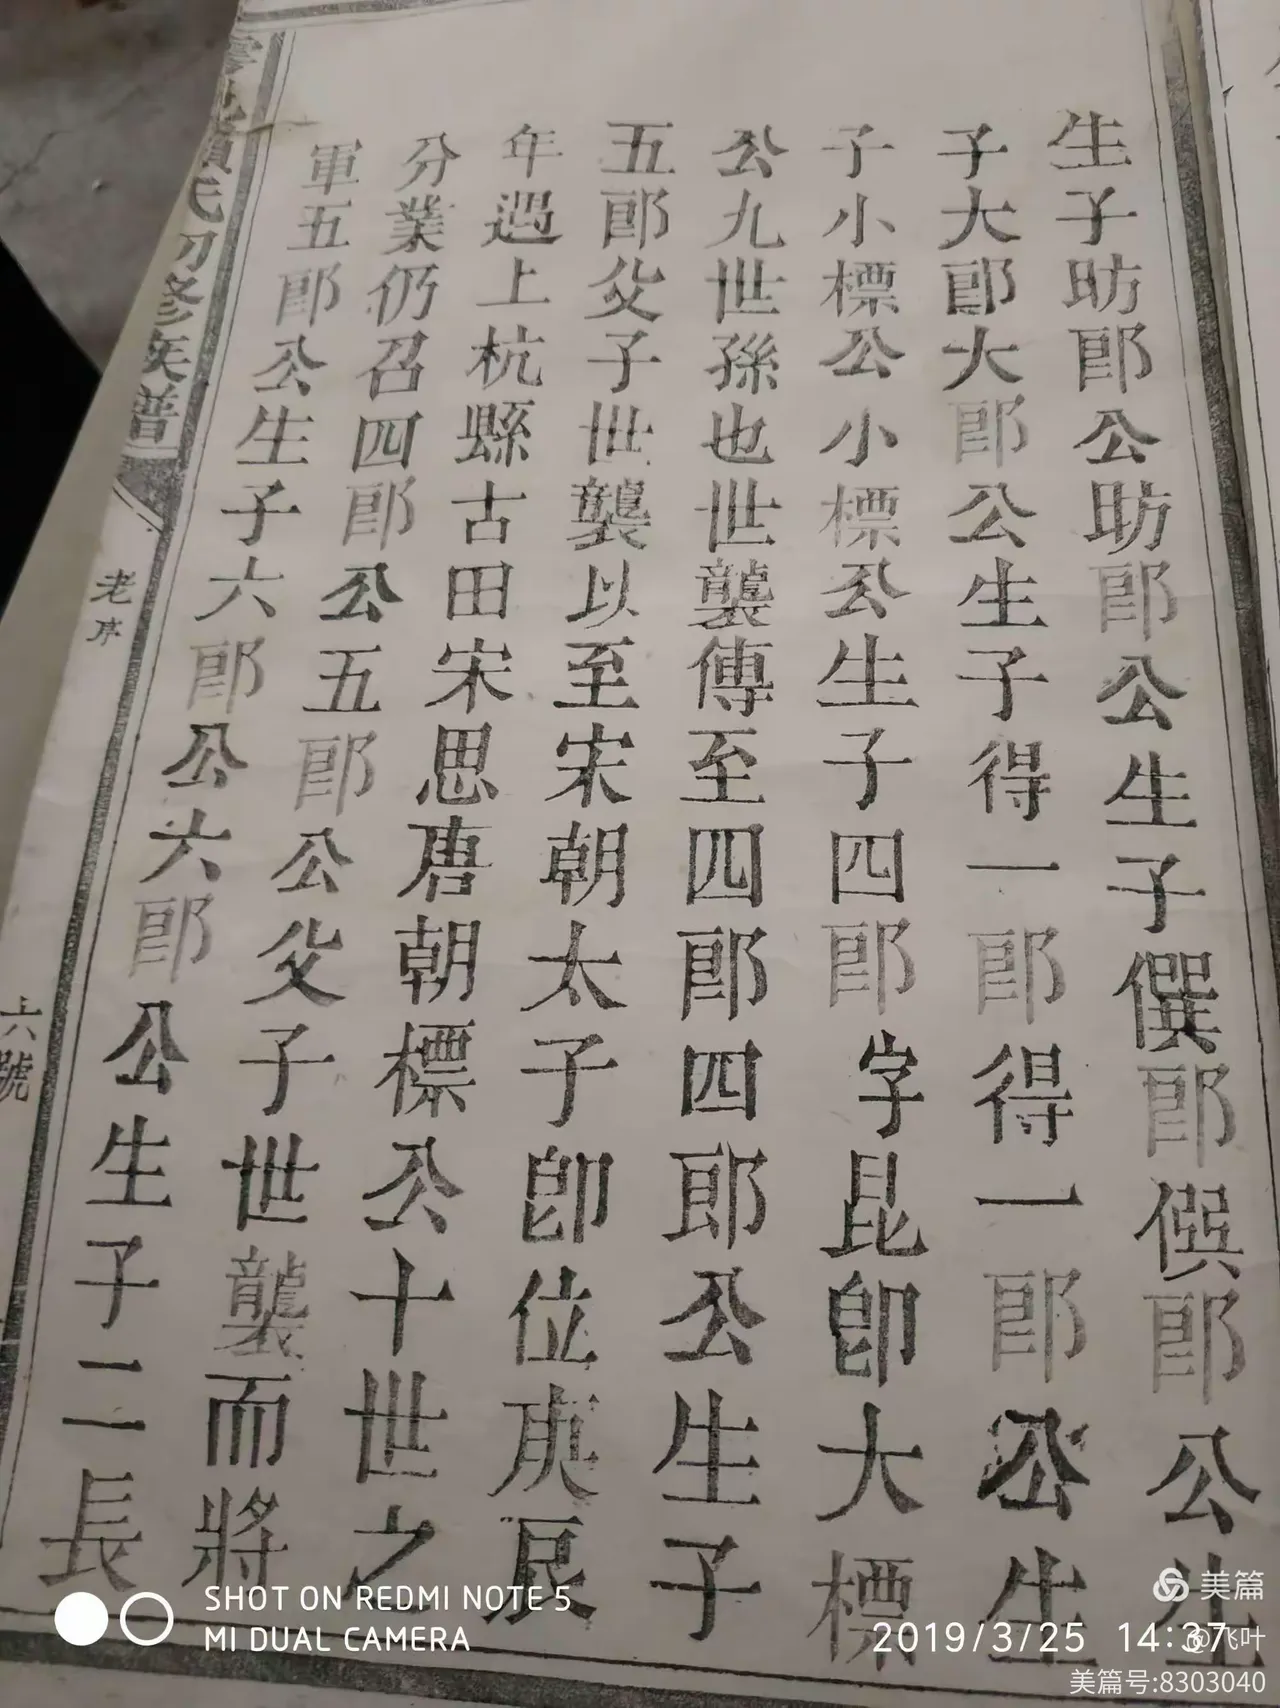 生子昉郎公昉郎公生子僎郎僎郎公生
子大郎大郎公生子得一郎得一郎公生
子小標公小標公生子四郎字昆卽大標
公九世孫也世襲傳至四郎四郎公生子
五郎父子世襲以至宋朝太子卽位庚辰
年遇上杭縣古田宋思唐朝標公十世之
分業仍召四郎公五郎公父子世襲而將
軍五郎公生子六郎公六郎公生子二長
氏初修族譜
老序
六號
SHOT ON REDMI NOTE 5
MI DUAL CAMERA
2019/3/25 14:37
美篇
@飞叶
美篇号:8303040